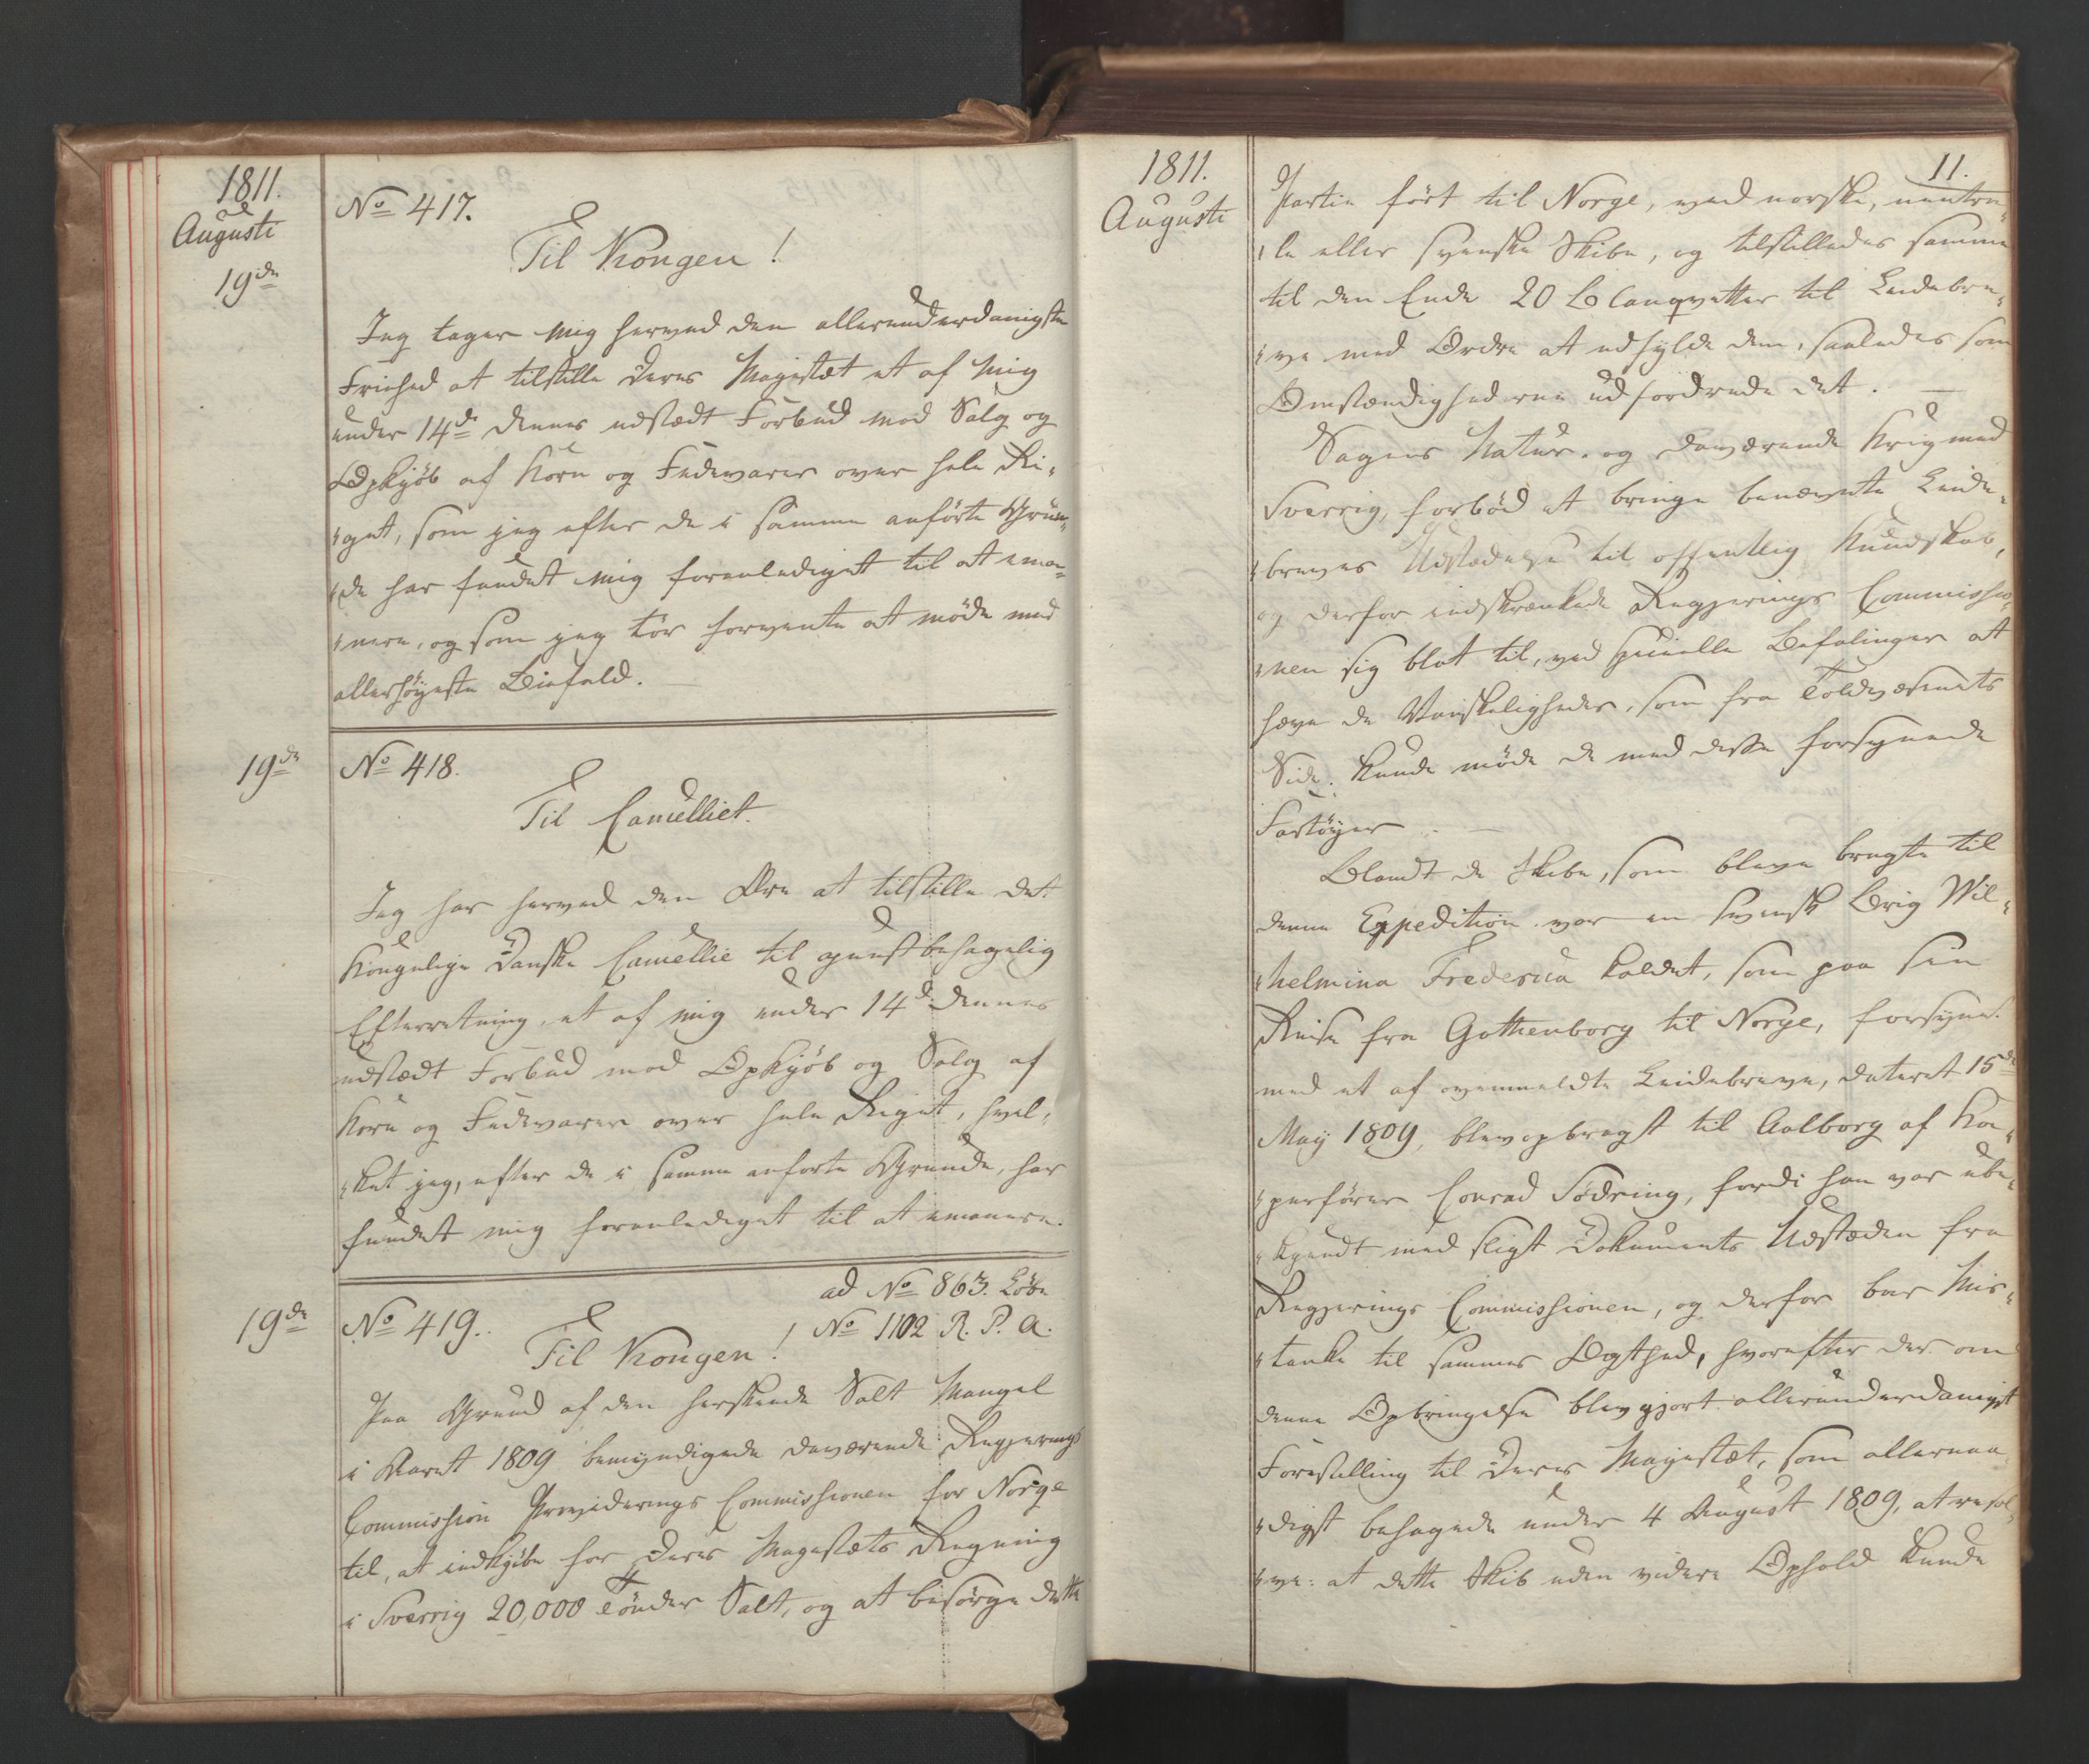 1811.
Augusti
19de
No 417.
Til Kongen!
Jeg tager mig herved den allerunderdanigste
Friehed at tilstille Deres Majestæt et af mig
under 14de dennes udstædt Forbud mod Salg og
Opkjöb af Korn og Fedevarer over hele Ri-
get, som jeg efter de i samme anförte Grün-
de har fundet mig foranlediget til at ema-
nere, og som jeg tör forvente at möde med
allerhöyeste Biefald.
19de
No 418.
Til Cancelliet.
Jeg har herved den Ære at tilstille det
Kongelige Danske Cancellie til gunstbehagelig
Efterretning, et af mig under 14de dennes
udstædt Forbud mod Opkjöb og Salg af
Korn og Fedevarer over hele Riget, hvil-
ket jeg, efter de i samme anförte Grunde, har
fundet mig foranlediget til at emanere.
19de
No 419.
ad No 863. Löbe
No 1102 R. P. A.
Til Kongen!
Paa Grund af den herskende Salt Mangel
i Aaret 1809 bemyndigede daværende Regjerings
Commission Provideerings Commissionen for Norge
til, at indkjöbe for Deres Majestæts Regning
i Sverrig 20,000 Tönder Salt, og at besörge dette
1811.
Augusti
11.
Partie fört til Norge, med norske, neutra-
le eller svenske Skibe, og tilstilledes samme
til den Ende 20 Blanqvetter til Leidebre-
ve med Ordre at udfylde dem, saaledes som
Omstændighederne udfordrede det.
Sagens Natur og daværende Krig med
Sverrig, forbød at bringe benævnte Leide-
breves Udstædelse til offentlig Kundskab,
og derfor indskrænkede Regjerings Commissio-
nen sig blot til, ved specielle Befalinger at
hæve de Vanskeligheder, som fra Toldvæsenets
Side kunde möde de med disse forsynede
Fartöyer.
Blandt de Skibe, som bleve brugte til
denne Expedition var en svensk Brig Wil-
helmina Frederica kaldet, som paa sin
Reise fra Gothenborg til Norge, forsynet
med et af ovenmeldte Leidebreve, dateret 15de
May 1809, blev opbragt til Aalborg af Ka-
perförer Conrad Södring, fordi han var ube-
kjendt med sligt Dokuments Udstæden fra
Regjerings Commissionen, og derfor bar Mis-
tanke til sammes Ægthed, hvorefter der om
denne Opbringelse blev gjort allerunderdanigst
Forestilling til Deres Majestæt, som allernaa-
digst behagede under 4 August 1809, at resol-
vere: at dette Skib uden videre Ophold kunde